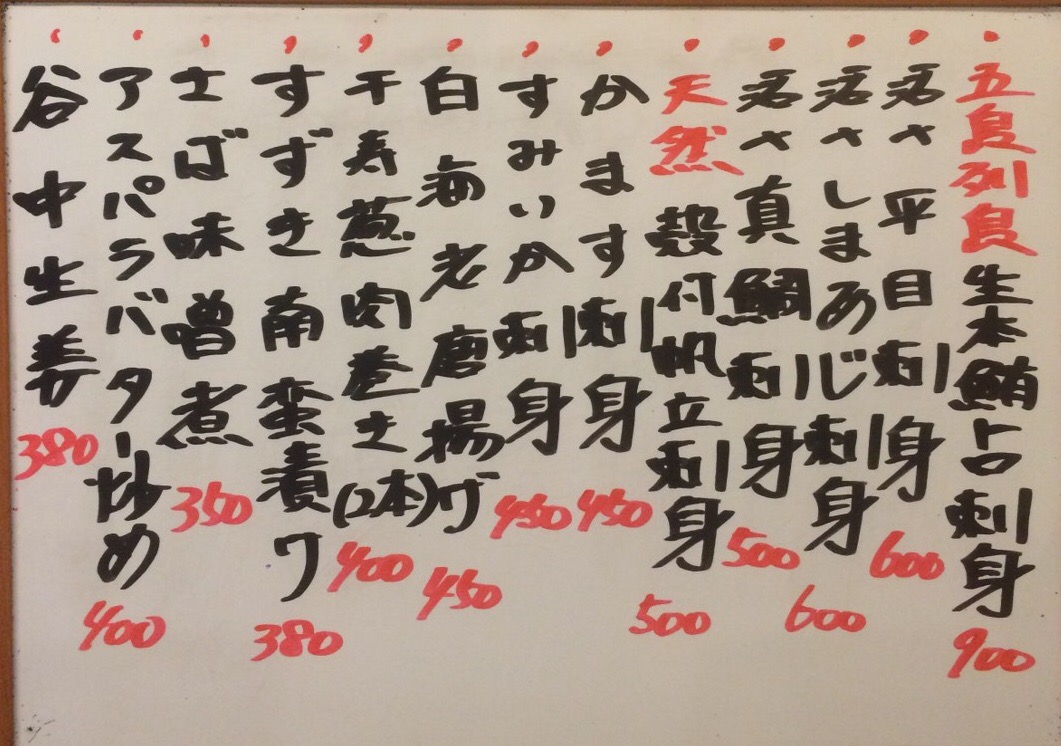 五島列島生本鮪トロ刺身 900
活〆平目刺身 600
活〆しまあじ刺身 600
活〆真鯛刺身 500
天然殻付帆立刺身 500
かます刺身 450
すみいか刺身 450
白海老唐揚げ 450
千寿葱肉巻き(2本) 400
すずき南蛮漬け 380
さば味噌煮 350
アスパラバター炒め 400
谷中生姜 380